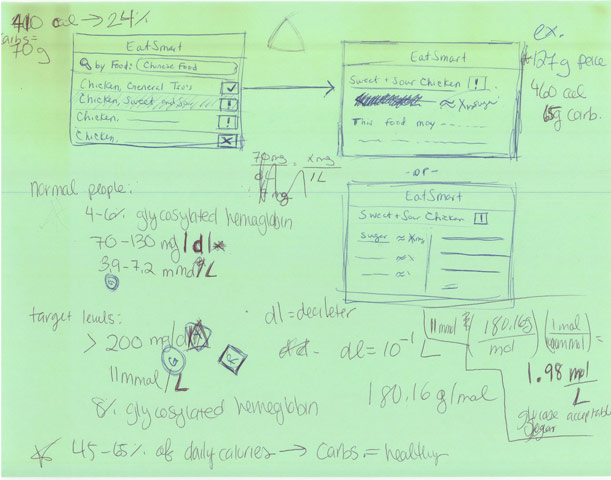 410 cal → 24%
carbs =
70g
EatSmart
by Food: Chinese Food
Chicken, General Tso's
Chicken, Sweet and Sour
Chicken,
Chicken,
EatSmart
Sweet + Sour Chicken !
≈ Xmg
This food may
ex.
127g peice
460 cal
g carb.
70mg
dl
= x mg
/L
-or-
EatSmart
Sweet + Sour Chicken !
sugar ≈ Xmg
normal people:
4-6% glycosylated hemaglobin
70-130 mg/dl*
3.9-7.2 mmol/L
target levels:
> 200 mg/dl
11 mmol/L
8% glycosylated hemeglobin
dl = decileter
dl = 10⁻¹ L
180.16 g/mol
11 mmol
(180.16g / mol)
(1 mol / mmol) =
1.98 mol
L
glucose acceptable
sugar
* 45-65% of daily calories → carbs = healthy